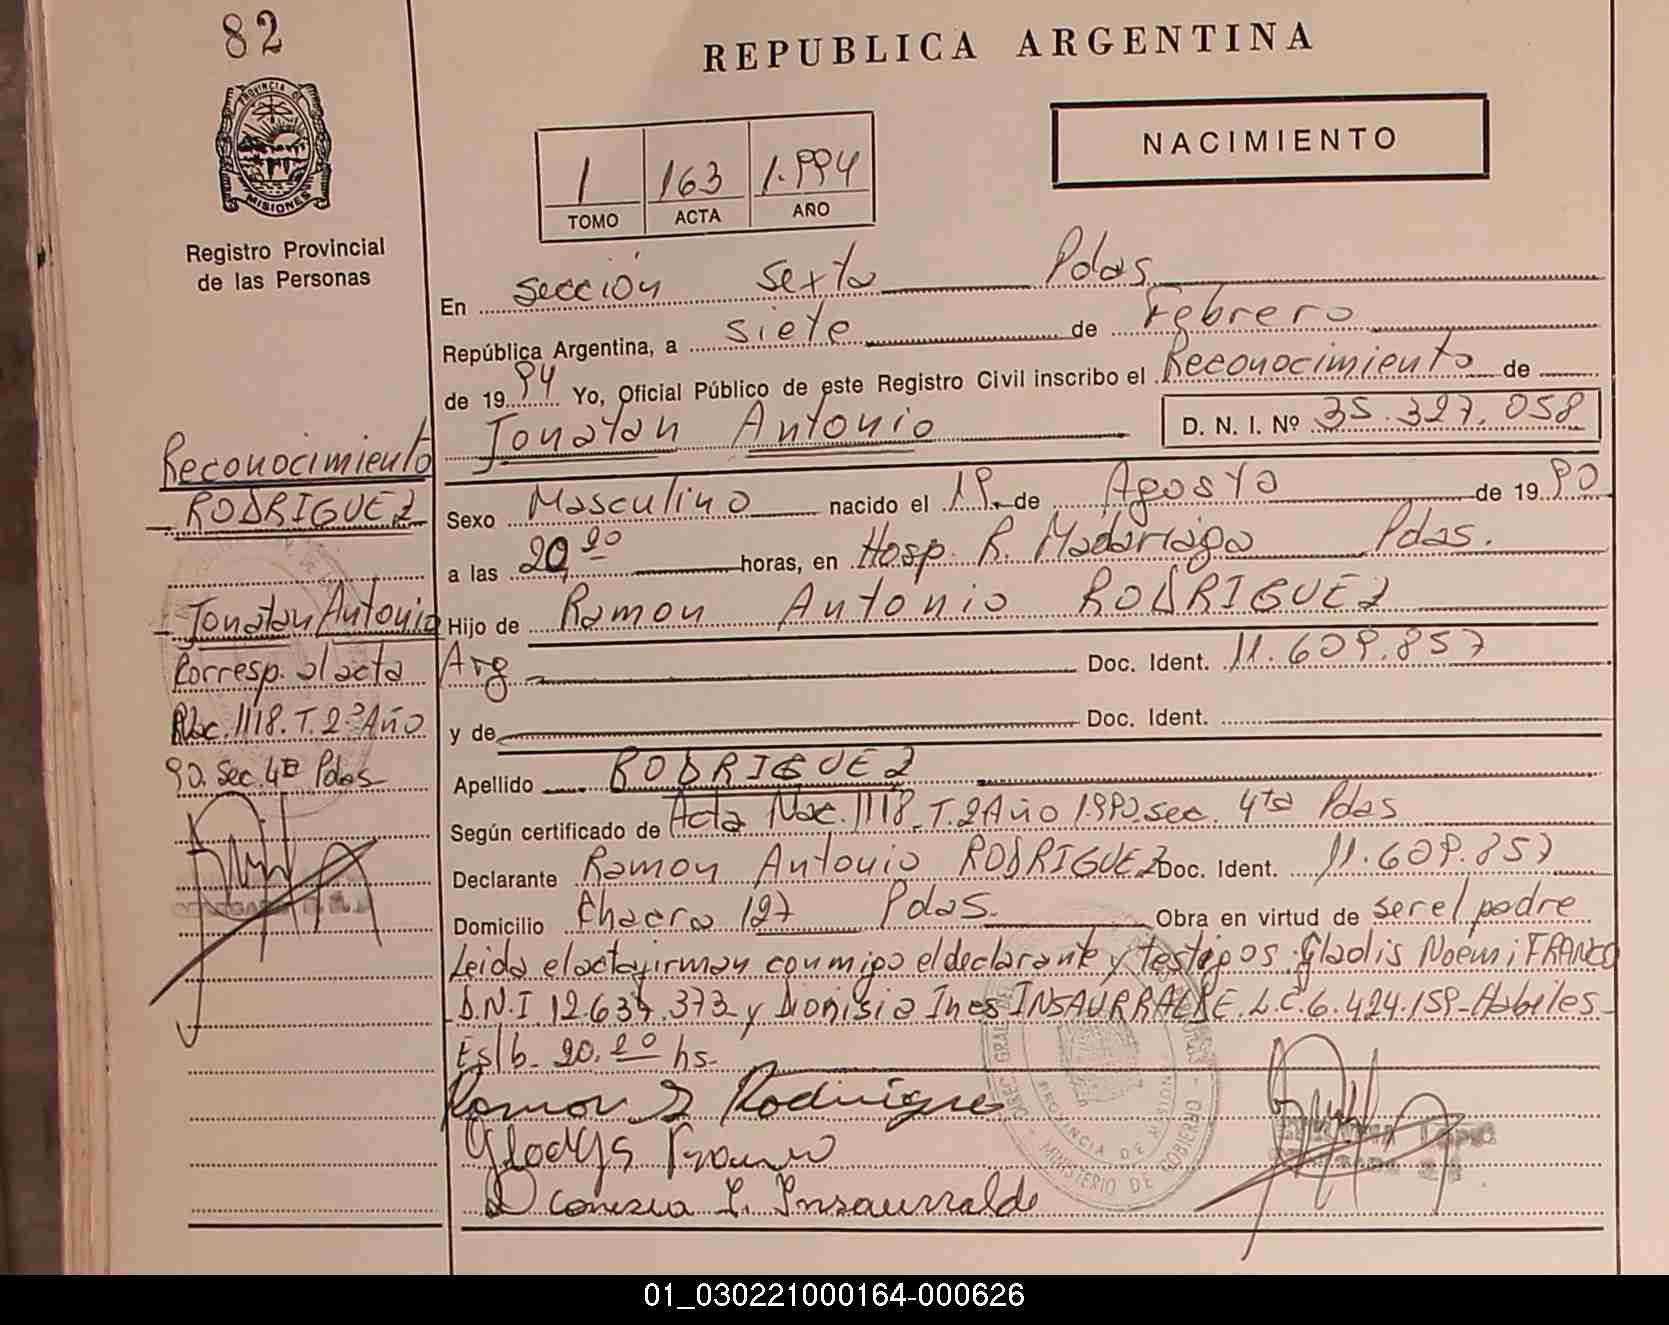 82
REPUBLICA ARGENTINA
PROVINCIA DE
MISIONES
NACIMIENTO
1 163 1.994
TOMO ACTA AÑO
Registro Provincial
de las Personas
En sección Sexta Pdas.
República Argentina, a siete de Febrero
de 1994 Yo, Oficial Público de este Registro Civil inscribo el Reconocimiento de
Jonatan Antonio D. N. I. Nº 35.327.058
Sexo Masculino nacido el 19 de Agosto de 1990
a las 20,20 horas, en Hosp. R. Madariaga Pdas.
Hijo de Ramon Antonio RODRIGUEZ
Arg Doc. Ident. 11.609.857
y de Doc. Ident.
Apellido RODRIGUEZ
Según certificado de Acta Nac. 1118. T. 2 Año 1.990. sec. 4ta Pdas
Declarante Ramon Antonio RODRIGUEZ Doc. Ident. 11.609.857
Domicilio Chacra 127 Pdas. Obra en virtud de ser el padre
Leida el acta firman conmigo el declarante y testigos Gladis Noemi FRANCO
D.N.I 12.637.373 y Dionisia Ines INSAURRALDE. L.C. 6.424.159-Habiles
20.20 hs.
Gladys Franco
Insaurralde
Reconocimiento
RODRIGUEZ
Jonatan Antonio
Corresp. al acta
Nac. 1118. T. 2º Año
90. Sec. 4ª Pdas
PROVINCIA DE MISIONES
MINISTERIO DE GOBIERNO
01_030221000164-000626